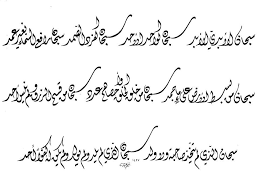 سبحان الأبدي الأبد سبحان الواحد الأحد سبحان الفرد الصمد سبحان رافع السماء بغير عمد
سبحان من بسط الأرض على ماء جمد سبحان من خلق الخلق وأحصاهم عدد سبحان من قسم الرزق ولم ينس أحد
سبحان الذي لم يتخذ صاحبة ولا ولد سبحان الذي لم يلد ولم يولد ولم يكن له كفوا أحد